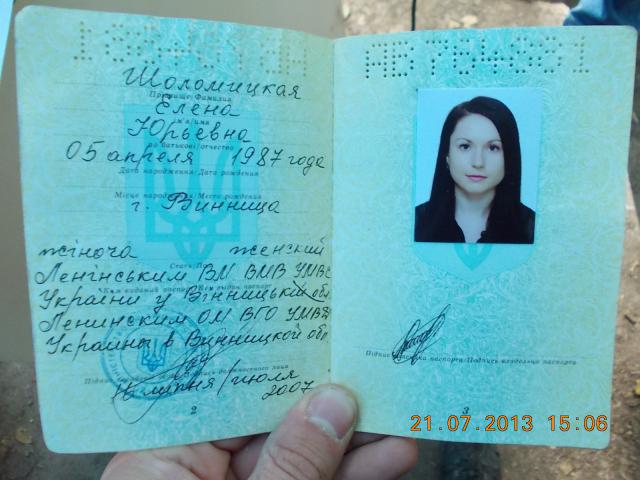 Шоломицкая
Прізвище/Фамилия
Елена
ім'я/имя
Юрьевна
по батькові/отчество
05 апреля 1987 года
Дата народження/Дата рождения
Місце народження/Место рождения
г. Винница
жіноча женский
Стать/Пол
Ленінським ВМ ВМВ УМВС
Ким виданий паспорт/Кем выдан паспорт
України у Вінницькій обл
Ленинским ОМ ВГО УМВД
Украины в Винницкой обл
Підпис посадової особи/Подпись должностного лица
16 липня/июля
2007
2
Підпис власника паспорта/Подпись владельца паспорта
3
21.07.2013 15:06